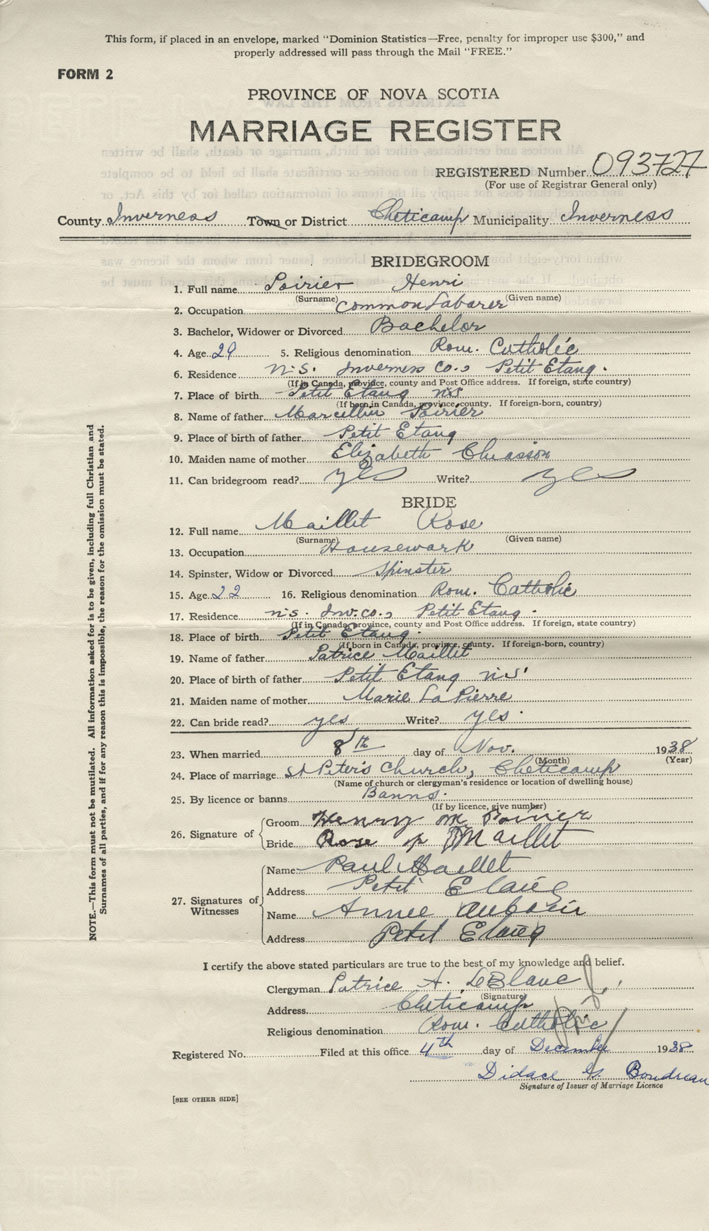 This form, if placed in an envelope, marked "Dominion Statistics—Free, penalty for improper use $300," and
properly addressed will pass through the Mail "FREE."
FORM 2
PROVINCE OF NOVA SCOTIA
MARRIAGE REGISTER
REGISTERED Number 093727
(For use of Registrar General only)
County Inverness Town or District Cheticamp Municipality Inverness
BRIDEGROOM
1. Full name Poirier Henri
(Surname) (Given name)
2. Occupation Common Laborer
3. Bachelor, Widower or Divorced Bachelor
4. Age 29 5. Religious denomination Rom. Catholic
6. Residence N.S. Inverness Co., Petit Etang.
(If in Canada, province, county and Post Office address. If foreign, state country)
7. Place of birth Petit Etang N.S.
(If born in Canada, province, county. If foreign-born, country)
8. Name of father Marcellin Poirier
9. Place of birth of father Petit Etang
10. Maiden name of mother Elizabeth Chiasson
11. Can bridegroom read? yes Write? yes
BRIDE
12. Full name Maillet Rose
(Surname) (Given name)
13. Occupation Housework
14. Spinster, Widow or Divorced Spinster
15. Age 22 16. Religious denomination Rom. Catholic
17. Residence N.S. Inv. Co., Petit Etang.
(If in Canada, province, county and Post Office address. If foreign, state country)
18. Place of birth Petit Etang.
(If born in Canada, province, county. If foreign-born, country)
19. Name of father Patrice Maillet
20. Place of birth of father Petit Etang N.S.
21. Maiden name of mother Marie La Pierre
22. Can bride read? yes Write? yes.
23. When married 8th day of Nov. 1938
(Month) (Year)
24. Place of marriage St Peter's Church, Cheticamp
(Name of church or clergyman's residence or location of dwelling house)
25. By licence or banns Banns.
(If by licence, give number)
26. Signature of
Groom Henry M Poirier
Bride Rose P Maillet
27. Signatures of Witnesses
Name Paul Maillet
Address Petit Etang
Name Annie Aucoin
Address Petit Etang
I certify the above stated particulars are true to the best of my knowledge and belief.
Clergyman Patrice A. LeBlanc
(Signature)
Address Cheticamp
Religious denomination Rom. Catholic
Registered No. Filed at this office 4th day of December 1938
Didace G. Boudreau
Signature of Issuer of Marriage Licence
[SEE OTHER SIDE]
NOTE.—This form must not be mutilated. All information asked for is to be given, including full Christian and
Surnames of all parties, and if for any reason this is impossible, the reason for the omission must be stated.